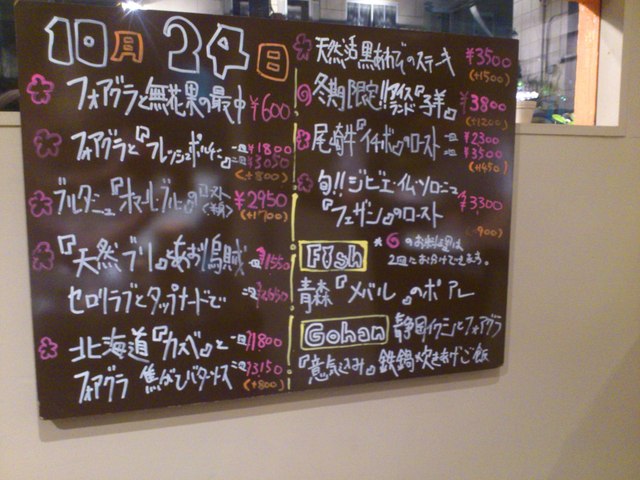 10月24日
フォアグラと無花果の最中 ¥600
フォアグラと『フレッシュポルチーニ』 一皿 ¥1800
二皿 ¥3050
(+800)
ブルターニュ『オマールブルー』のロースト ¥2950
(+1700)
『天然ブリ』とあおり烏賊 一皿 ¥1550
セロリラブとタップナードで
北海道『カスベ』と 一皿 ¥1800
フォアグラ 焦がしバターソース 二皿 ¥3150
(+800)
天然活黒あわびのステーキ ¥3500
(+1500)
冬期限定!!アイスランド『子羊』 ¥3800
(+1200)
尾崎牛『イチボ』のロースト 一皿 ¥2300
二皿 ¥3500
(+450)
旬!!ジビエ・イム・ソロニュ
『フェザン』のロースト ¥3300
900)
のお料理は
2皿にお分けできます。
Fish
青森『メバル』のポアレ
Gohan 静岡イクラとフォアグラ
『意気込み』鉄鍋炊きあげご飯